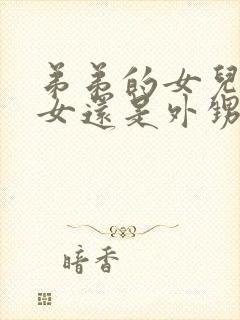 弟弟的女兒
女還是外甥
暗香